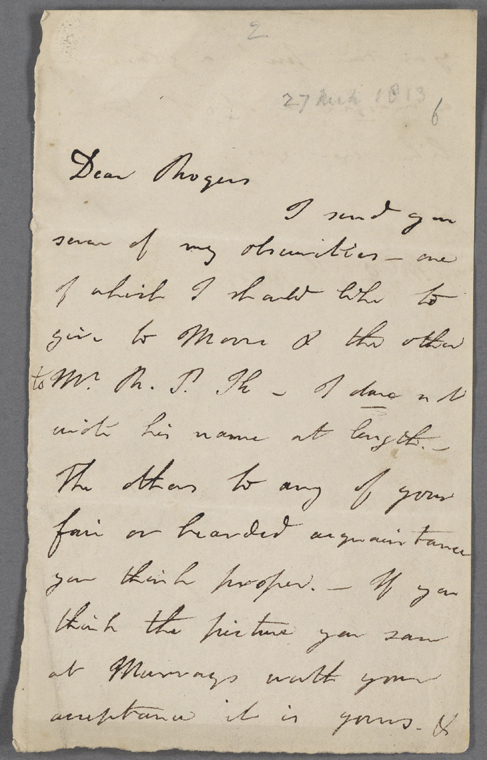 2
27 Mch 1813
6
Dear Rogers
I send you
seven of my obscurities — one
of which I should like to
give to Moore & the other
to Mr. R. P. Th — I dare not
write his name at length. —
The others to any of your
fair or bearded acquaintance
you think proper. — If you
think the picture you saw
at Murrays worth your
acceptance it is yours. &